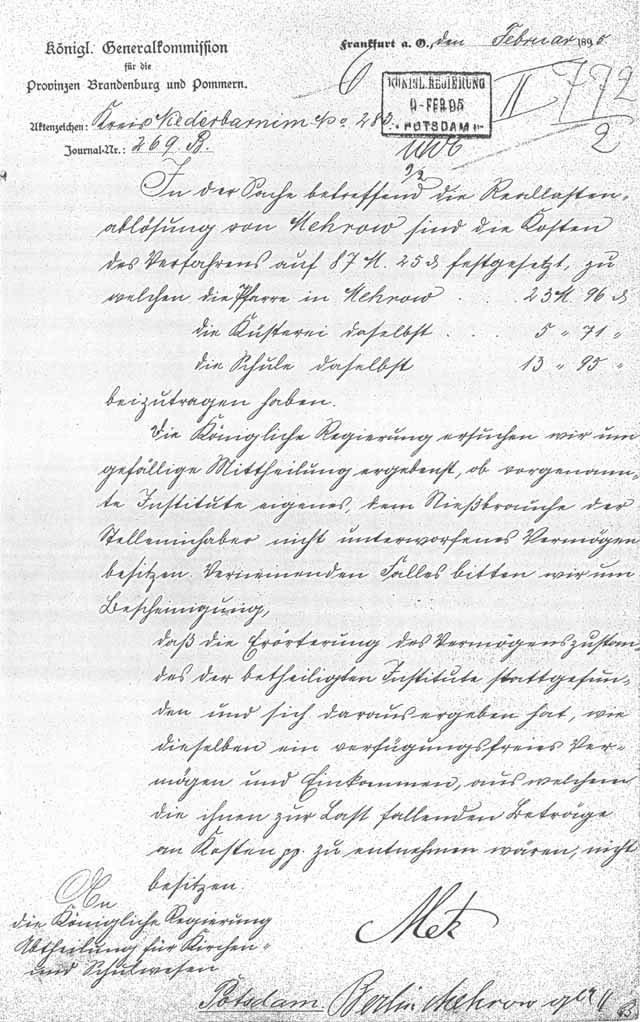 Königl. Generalkommission
für die
Provinzen Brandenburg und Pommern.
Frankfurt a. O., den Februar 1895.
KÖNIGL. REGIERUNG
9-FEB 95
POTSDAM
II 772
2
Aktenzeichen: Kreis Niederbarnim No 283.
Journal-Nr.: 269. B.
9/2
In der Sache betreffend die Reallasten-
ablösung von Mehrow sind die Kosten
des Verfahrens auf 87 M. 25 d festgesetzt, zu
welchen die Pfarre in Mehrow . . 23 M 96 d
die Küsterei daselbst . . . 5 " 71 "
die Schule daselbst 13 " 95 "
beizutragen haben.
Die Königliche Regierung ersuchen wir um
gefällige Mittheilung ergebenst, ob vorgenann-
te Institute eigenes, dem Nießbrauche der
Stelleninhaber nicht unterworfenes Vermögen
besitzen. Verneinenden Falles bitten wir um
Bescheinigung,
daß die Erörterung des Vermögenszustan-
des der betheiligten Institute stattgefun-
den und sich daraus ergeben hat, wie
dieselben ein verfügungsfreies Ver-
mögen und Einkommen, aus welchem
die ihnen zur Last fallenden Beträge
an Kosten pp. zu entnehmen wären, nicht
besitzen.
An
die Königliche Regierung
Abtheilung für Kirchen-
und Schulwesen
Potsdam.
Metz
Berlin Mehrow